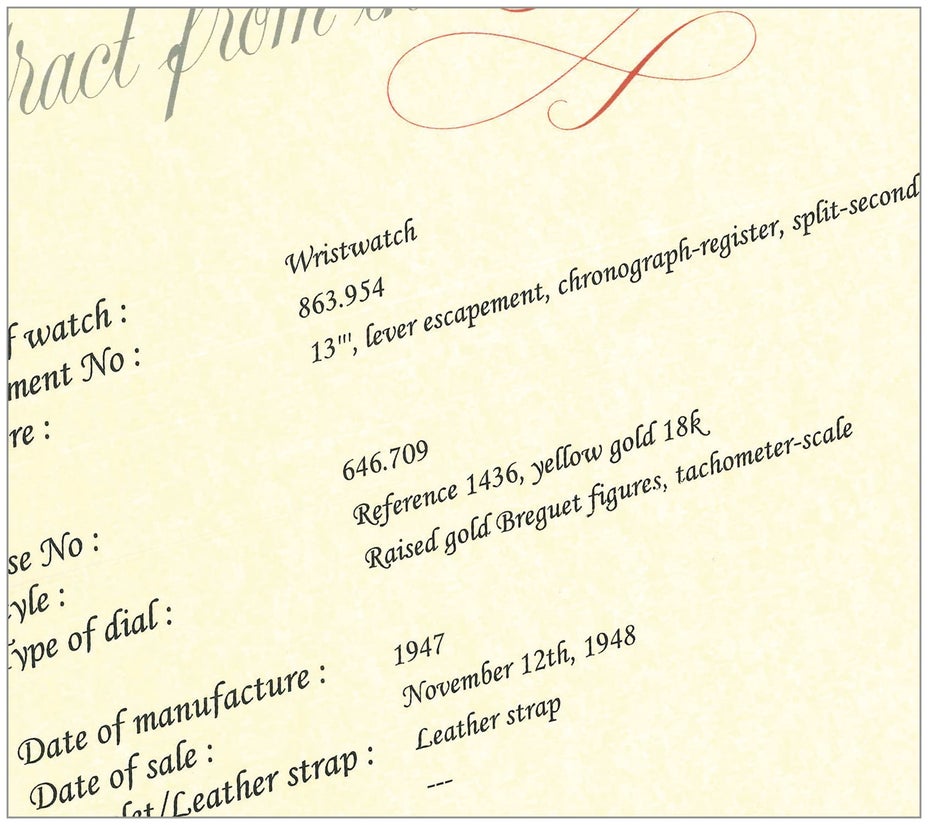 ract from th
f watch : Wristwatch
ment No : 863.954
re : 13''', lever escapement, chronograph-register, split-second
se No : 646.709
yle : Reference 1436, yellow gold 18k
Type of dial : Raised gold Breguet figures, tachometer-scale
Date of manufacture : 1947
Date of sale : November 12th, 1948
let/Leather strap : Leather strap
---